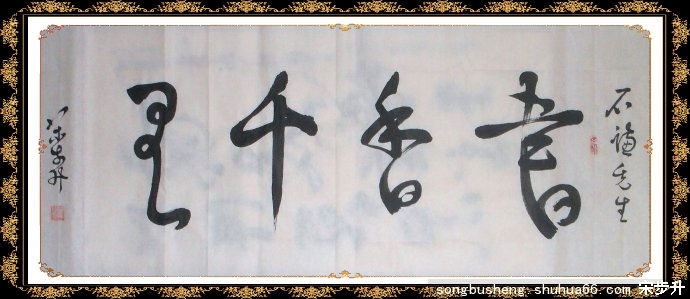 石謙先生
書香千里
宋步升
songbusheng.shuhua66.com 宋步升